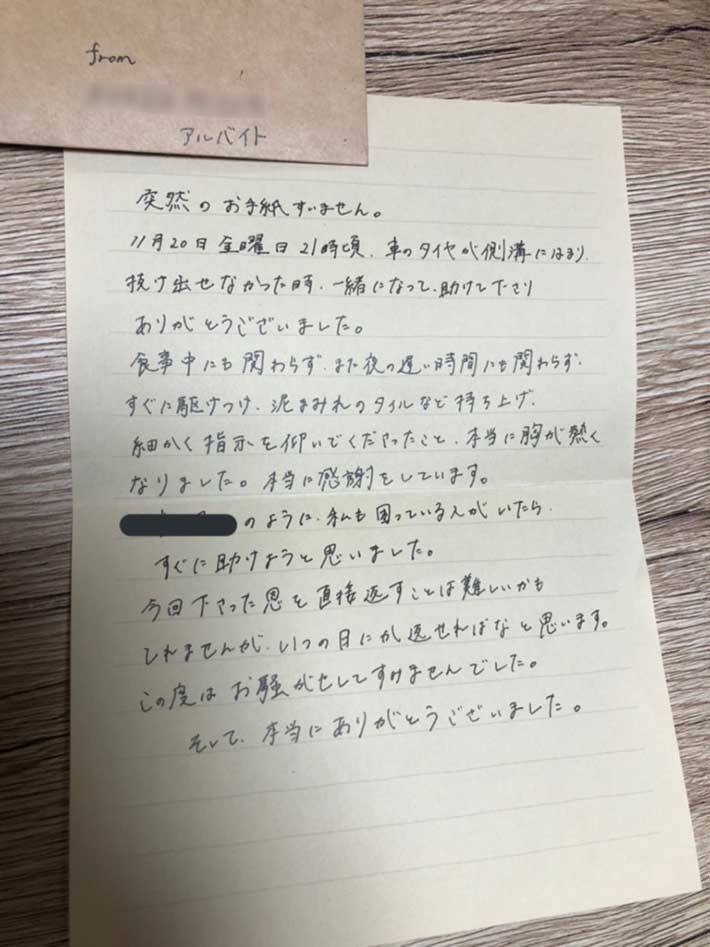 from
アルバイト
突然の お手紙すいません。
11月20日 金曜日 21時頃、車のタイヤが側溝にはまり、
抜け出せなかった時、一緒になって、助けて下さり
ありがとうございました。
食事中にも関わらず、また夜の遅い時間にも関わらず、
すぐに駆けつけ、泥まみれのタイルなど持ち上げ、
細かく指示を仰いでくださったこと、本当に胸が熱く
なりました。本当に感謝をしています。
のように、私も困っている人がいたら、
すぐに助けようと思いました。
今回下さった恩を直接返すことは難しいかも
しれませんが、いつの日にか返せればなと思います。
この度は お騒がせしてすみませんでした。
そして、本当にありがとうございました。